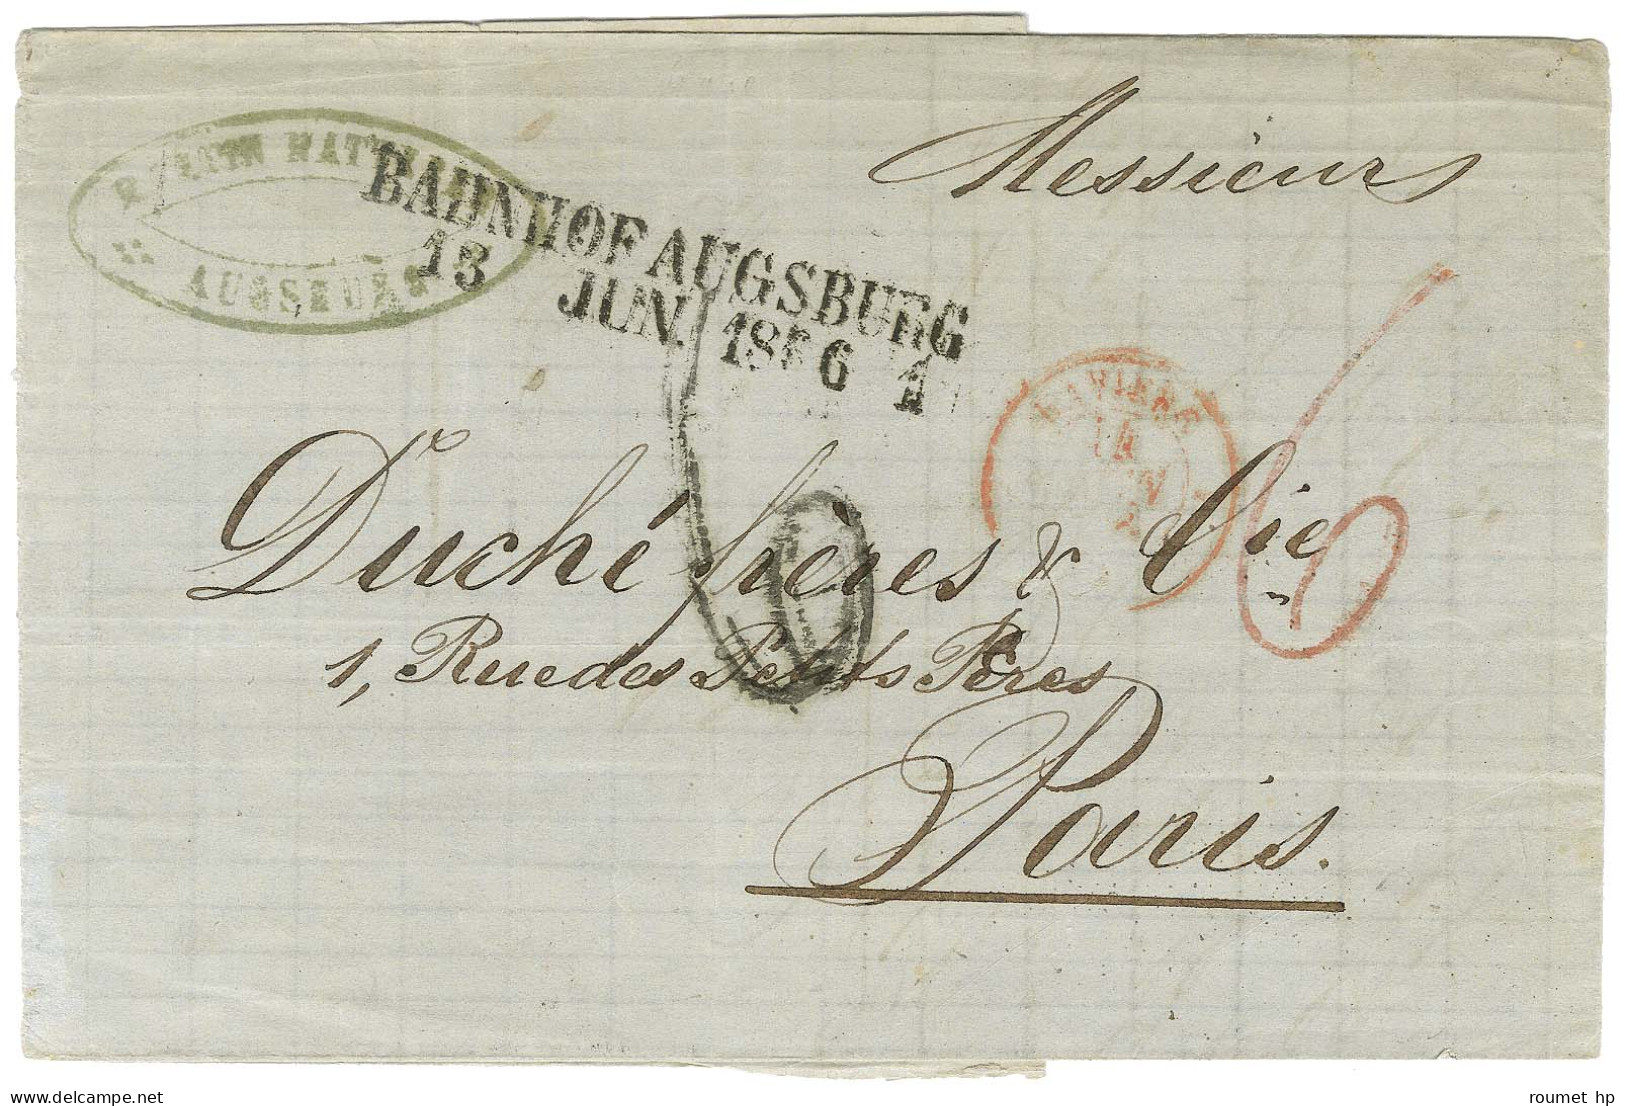 AUGSBURG
BAHNHOF AUGSBURG
13
JUN. 1856 1
Messieurs
BAVIERE
14
6
6
Duché frères & Cie
1, Rue des Petits Pères
Paris.
roumet hp